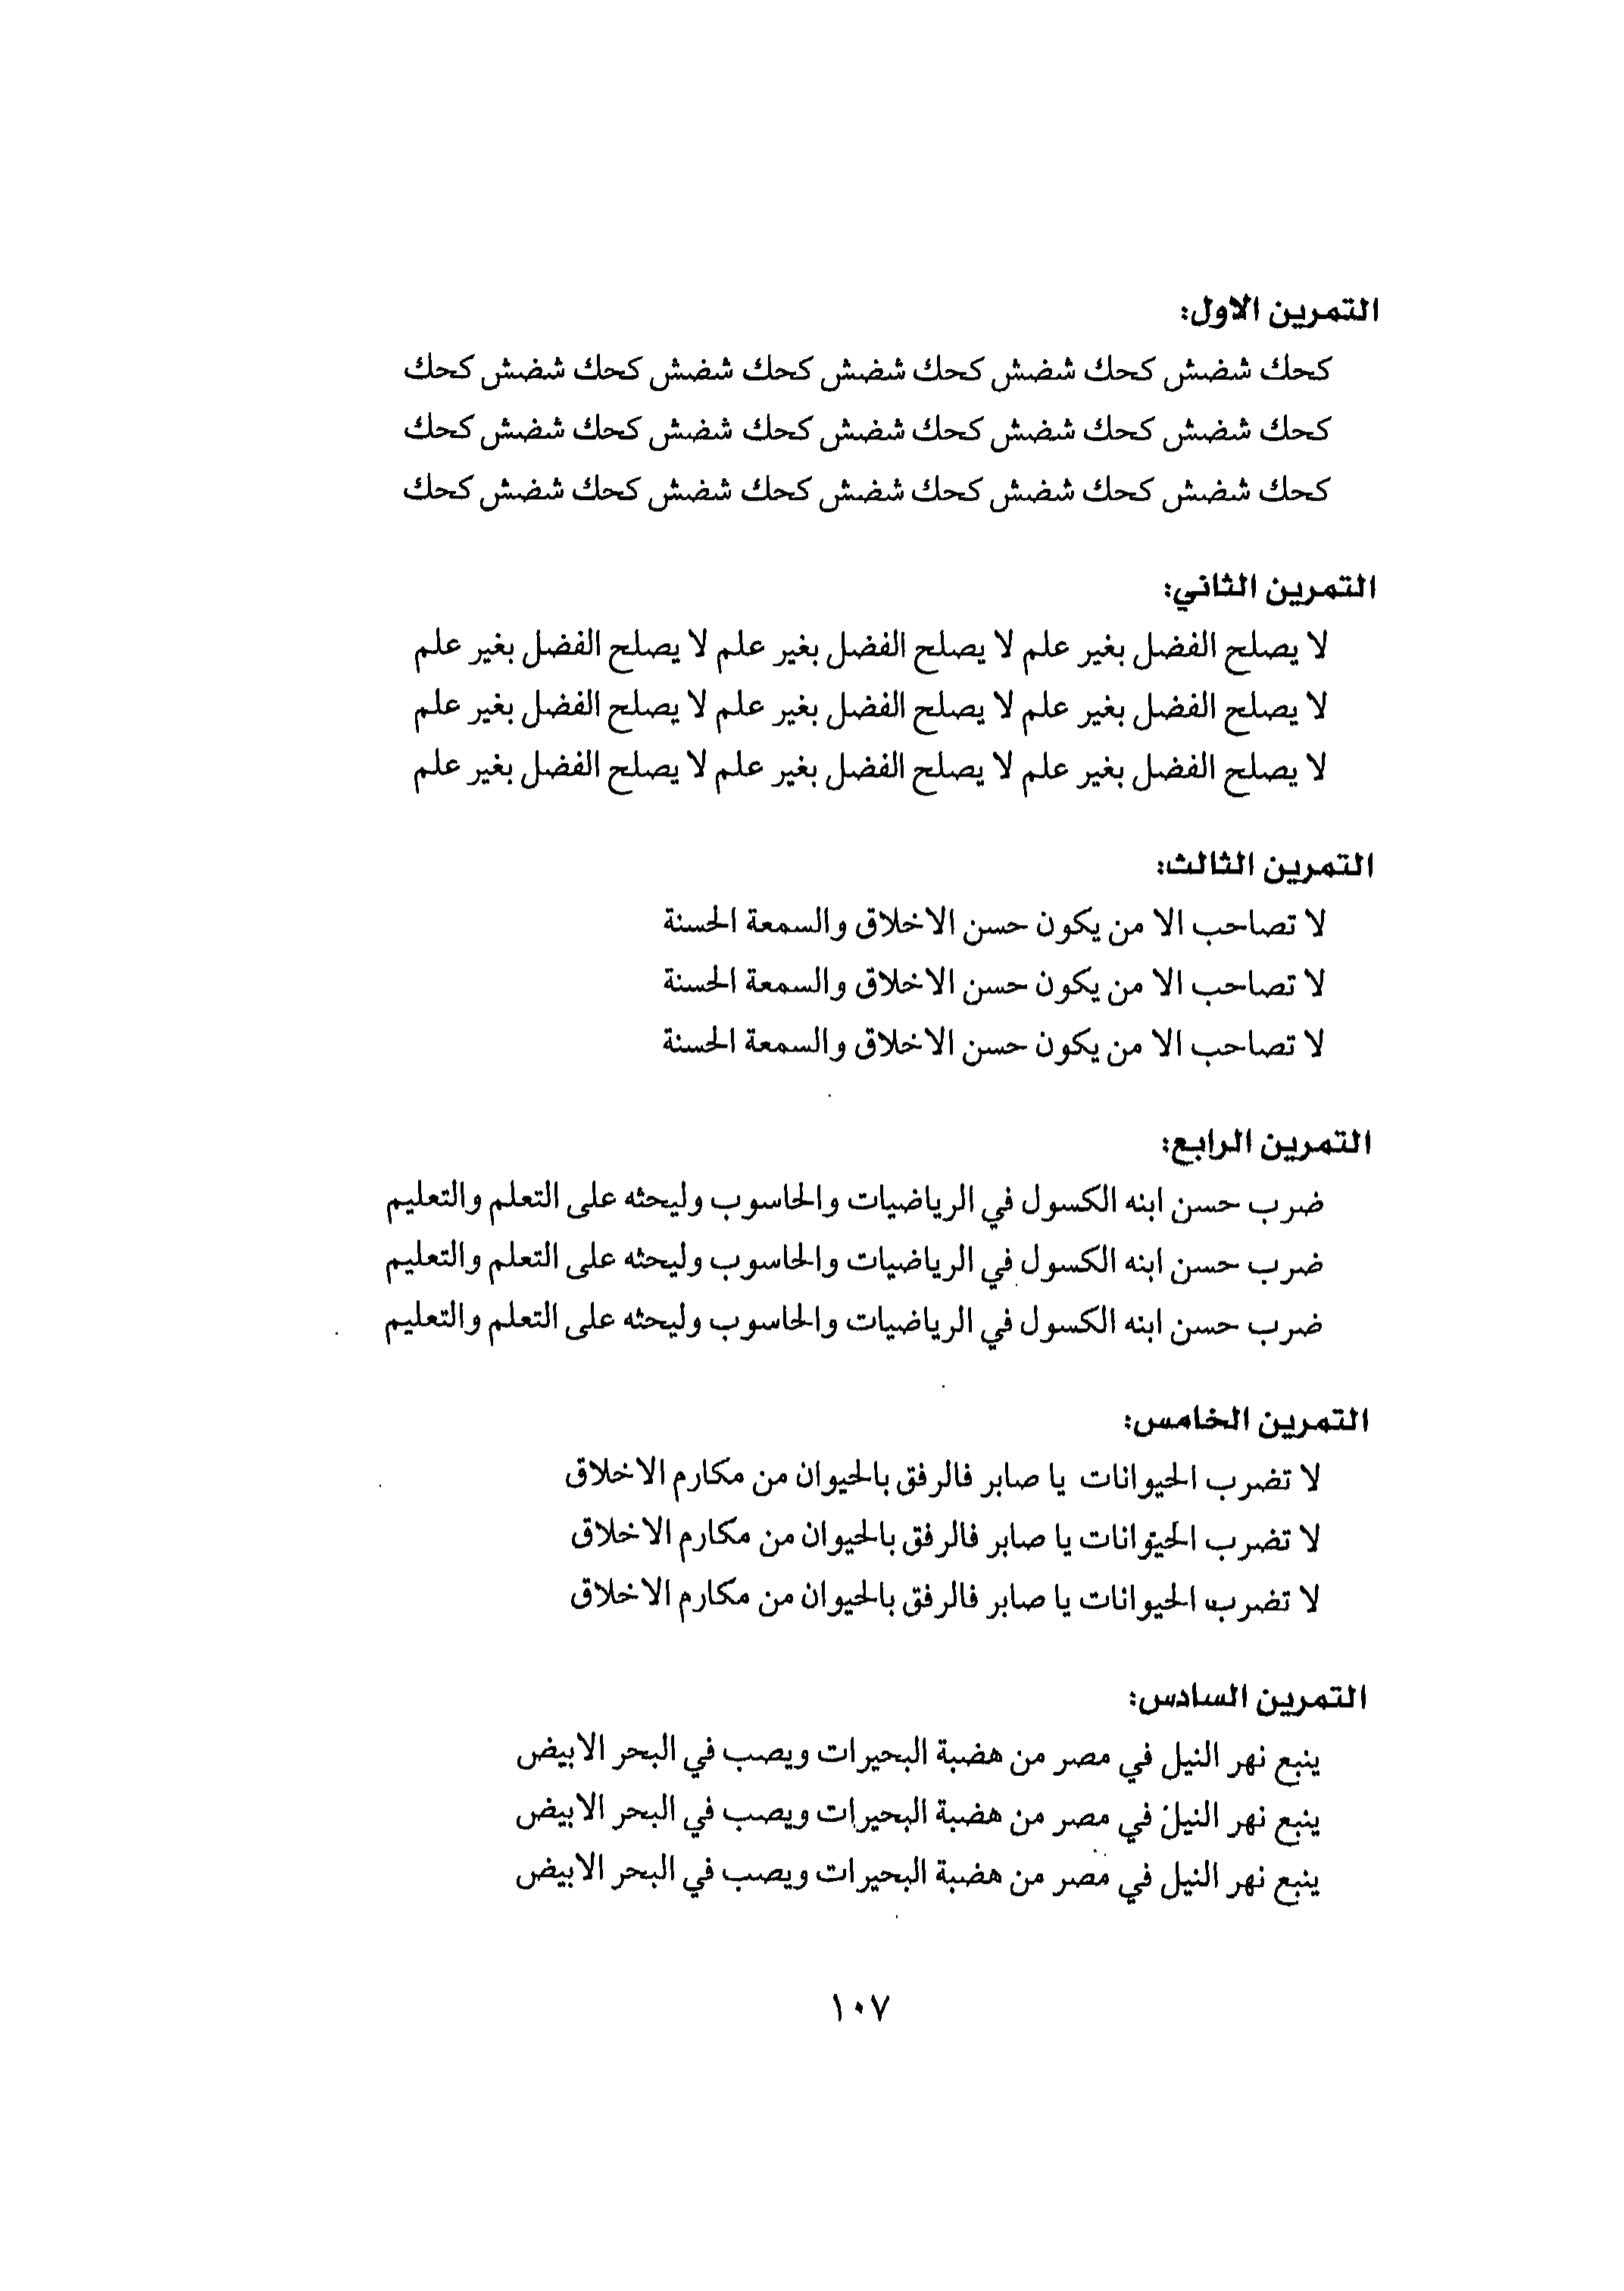 التمرين الاول:
كحك شضش كحك شضش كحك شضش كحك شضش كحك شضش كحك
كحك شضش كحك شضش كحك شضش كحك شضش كحك شضش كحك
كحك شضش كحك شضش كحك شضش كحك شضش كحك شضش كحك
التمرين الثاني:
لا يصلح الفضل بغير علم لا يصلح الفضل بغير علم لا يصلح الفضل بغير علم
لا يصلح الفضل بغير علم لا يصلح الفضل بغير علم لا يصلح الفضل بغير علم
لا يصلح الفضل بغير علم لا يصلح الفضل بغير علم لا يصلح الفضل بغير علم
التمرين الثالث:
لا تصاحب الا من يكون حسن الاخلاق والسمعة الحسنة
لا تصاحب الا من يكون حسن الاخلاق والسمعة الحسنة
لا تصاحب الا من يكون حسن الاخلاق والسمعة الحسنة
التمرين الرابع:
ضرب حسن ابنه الكسول في الرياضيات والحاسوب وليحثه على التعلم والتعليم
ضرب حسن ابنه الكسول في الرياضيات والحاسوب وليحثه على التعلم والتعليم
ضرب حسن ابنه الكسول في الرياضيات والحاسوب وليحثه على التعلم والتعليم
التمرين الخامس:
لا تضرب الحيوانات يا صابر فالرفق بالحيوان من مكارم الاخلاق
لا تضرب الحيوانات يا صابر فالرفق بالحيوان من مكارم الاخلاق
لا تضرب الحيوانات يا صابر فالرفق بالحيوان من مكارم الاخلاق
التمرين السادس:
ينبع نهر النيل في مصر من هضبة البحيرات ويصب في البحر الابيض
ينبع نهر النيل في مصر من هضبة البحيرات ويصب في البحر الابيض
ينبع نهر النيل في مصر من هضبة البحيرات ويصب في البحر الابيض
١٠٧